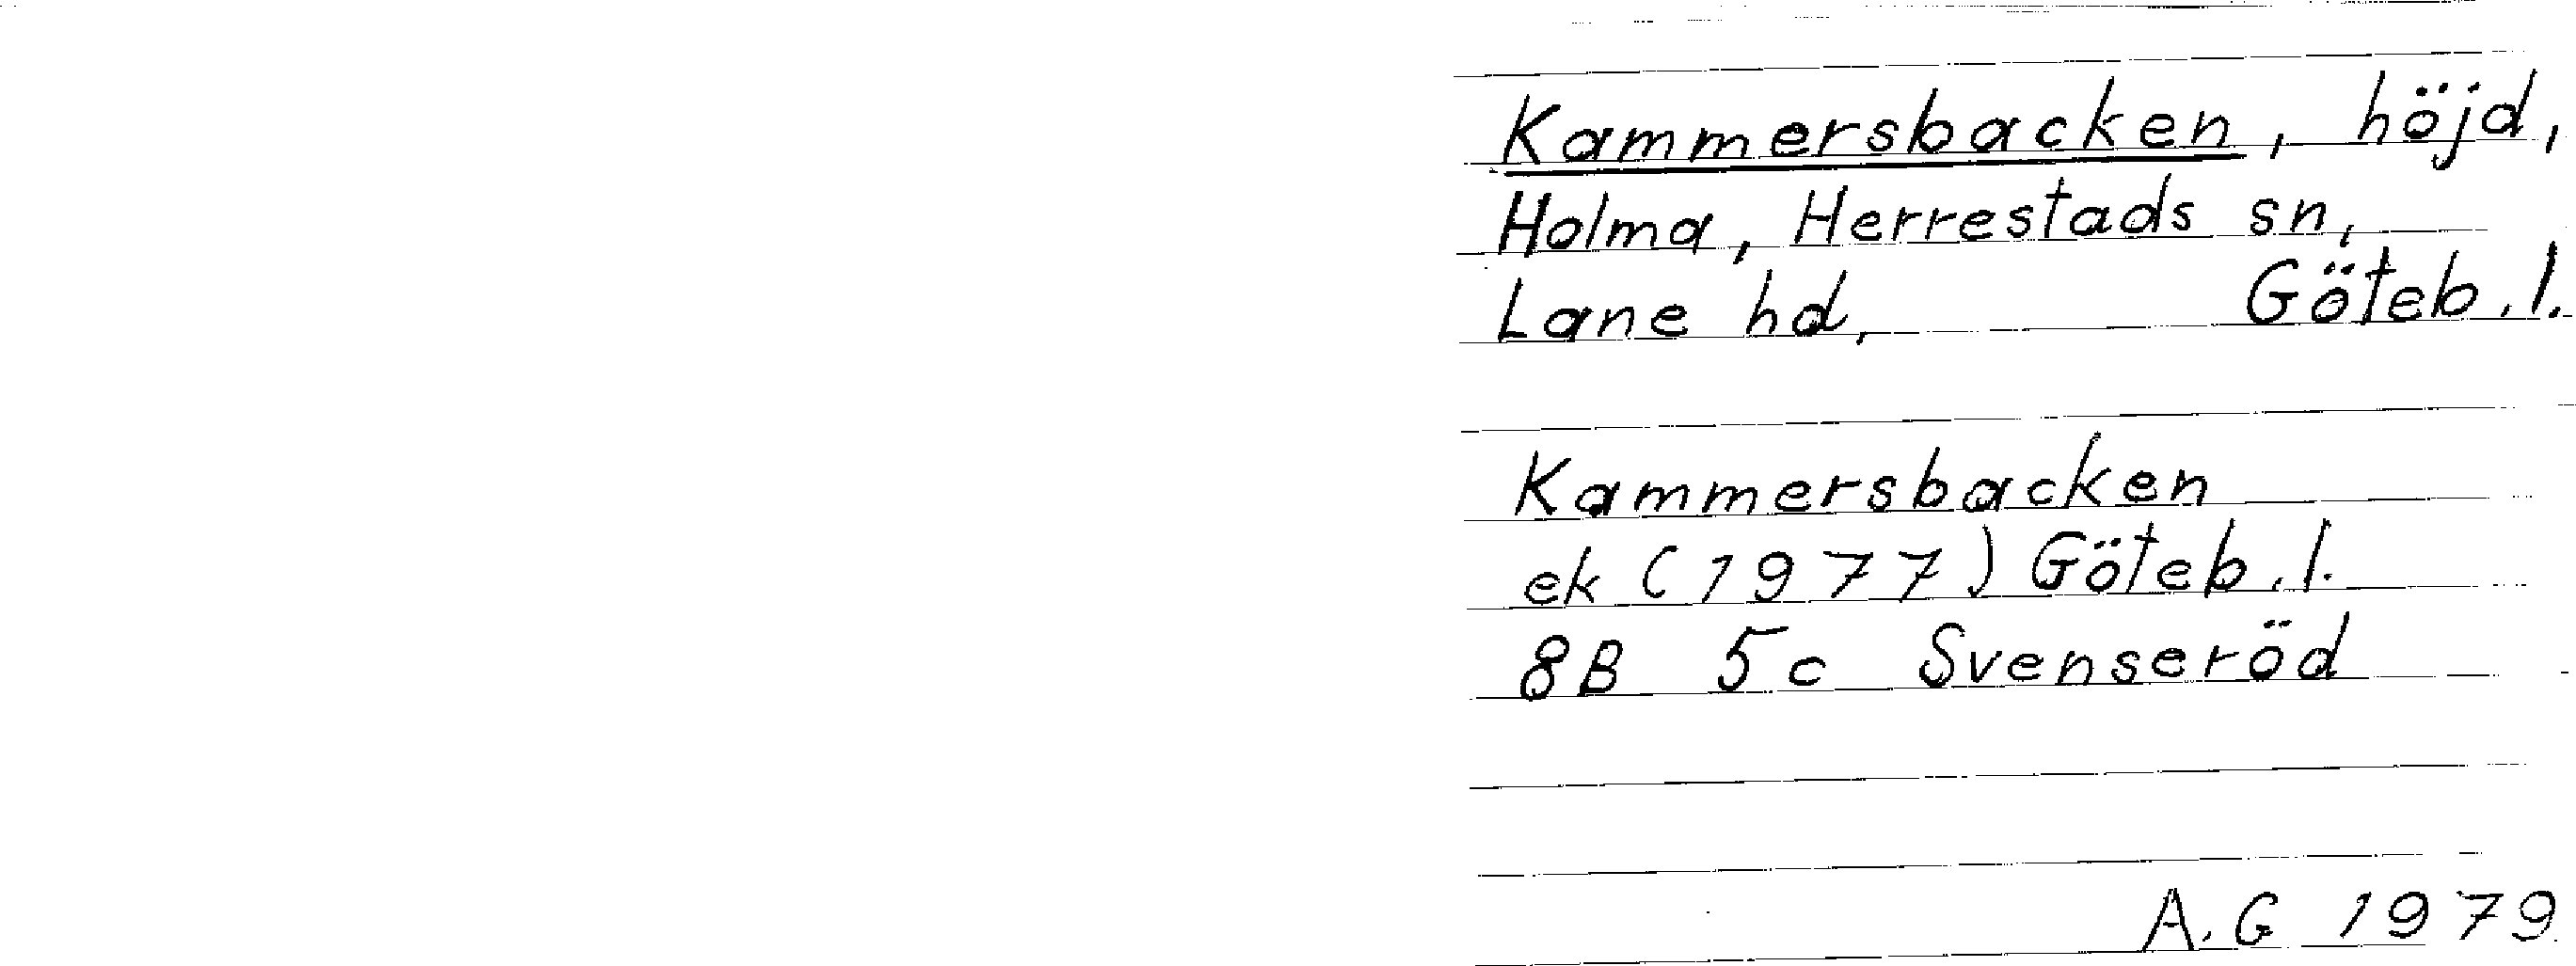 Kammersbacken, höjd,
Holma, Herrestads sn,
Lane hd, Göteb. l.
Kammersbacken
ek (1977) Göteb. l.
8B 5c Svenseröd
A. G 1979